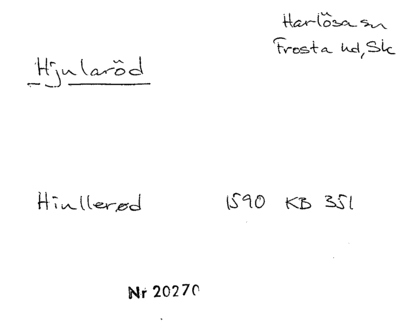 Harlösa sn
Frosta hd, Sk
Hjularöd
Hiullerød 1590 KB 351
Nr 20270